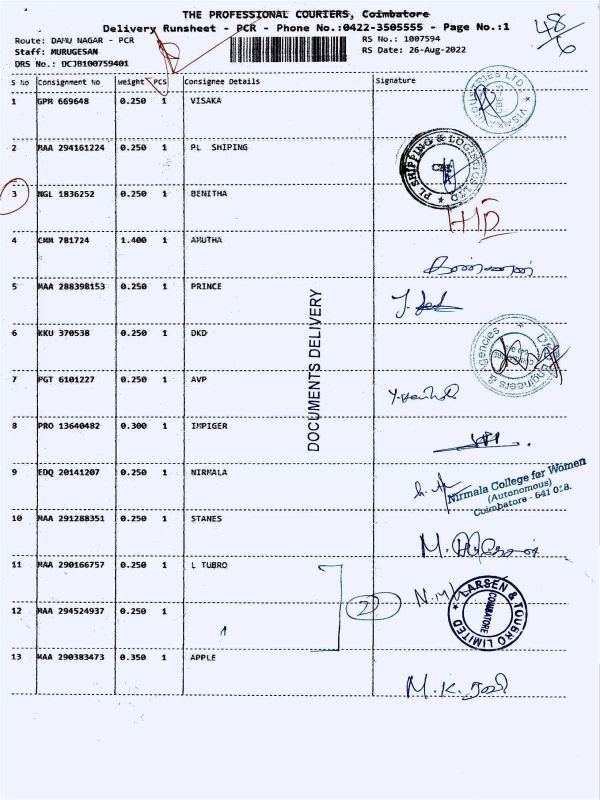 THE PROFESSIONAL COURIERS, Coimbatore
Delivery Runsheet - PCR - Phone No.:0422-3505555 - Page No.:1
48/6
Route: DAMU NAGAR - PCR
RS No.: 1007594
Staff: MURUGESAN
RS Date: 26-Aug-2022
DRS No.: DCJB100759401
S No Consignment No Weight PCS Consignee Details Signature
1 GPM 669648 0.250 1 VISAKA
2 MAA 294161224 0.250 1 PL SHIPING
PL SHIPPING & LOGISTICS LTD
3 NGL 1836252 0.250 1 BENITHA
4 CMM 781724 1.400 1 AMUTHA
5 MAA 288398153 0.250 1 PRINCE
6 KKU 370538 0.250 1 DKD
7 PGT 6101227 0.250 1 AVP
8 PRO 13640482 0.300 1 IMPIGER
9 EDQ 20141207 0.250 1 NIRMALA
Nirmala College for Women
(Autonomous)
Coimbatore - 641 018.
10 MAA 291288351 0.250 1 STANES
11 MAA 290166757 0.250 1 L TUBRO
12 MAA 294524937 0.250 1
2
LARSEN & TOUBRO LIMITED
COIMBATORE
13 MAA 290383473 0.350 1 APPLE
DOCUMENTS DELIVERY